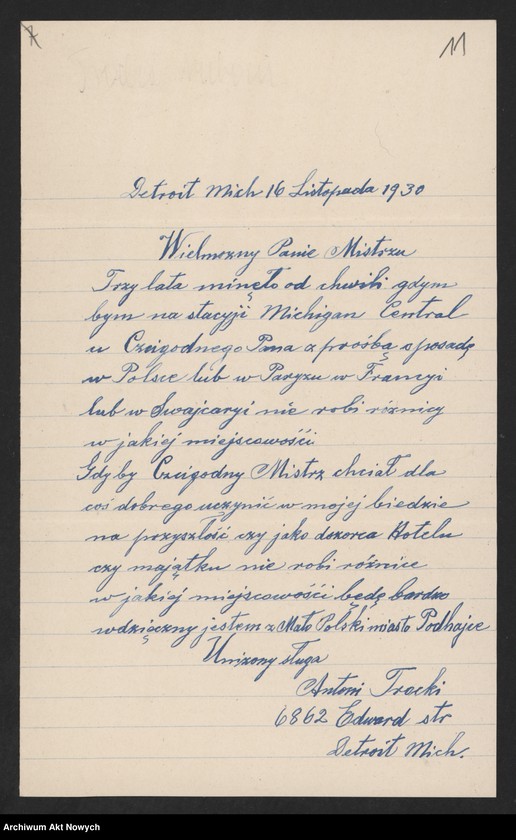 11
Detroit Mich 16 Listopada 1930
Wielmozny Panie Mistrzu
Trzy lata mineło od chwili gdym
bym na stacyji Michigan Central
u Czcigodnego Pana z prośbą o posadę
w Polsce lub w Paryzu w Francyi
lub w Swajcaryi nie robi róznicy
w jakiej miejscowości
Gdyby Czcigodny Mistrz chciał dla
coś dobrego uczynić w mojej biedzie
na przyszłość czy jako dozorca Hotelu
czy majątku nie robi róznice
w jakiej miejscowości będę bardzo
wdzięczny jestem z Mało Polski miasto Podhajce
Unizony sługa
Antoni Trocki
6862 Edward str
Detroit Mich.
Archiwum Akt Nowych